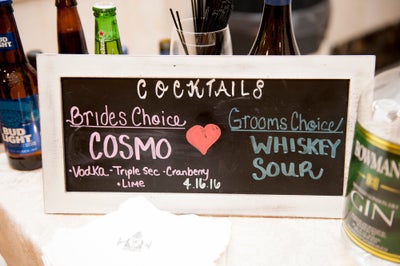 COCKTAILS
Brides Choice
COSMO
Vodka - Triple Sec - Cranberry
- Lime
4.16.16
Grooms Choice
WHISKEY
SOUR
BUD
LIGHT
GIN